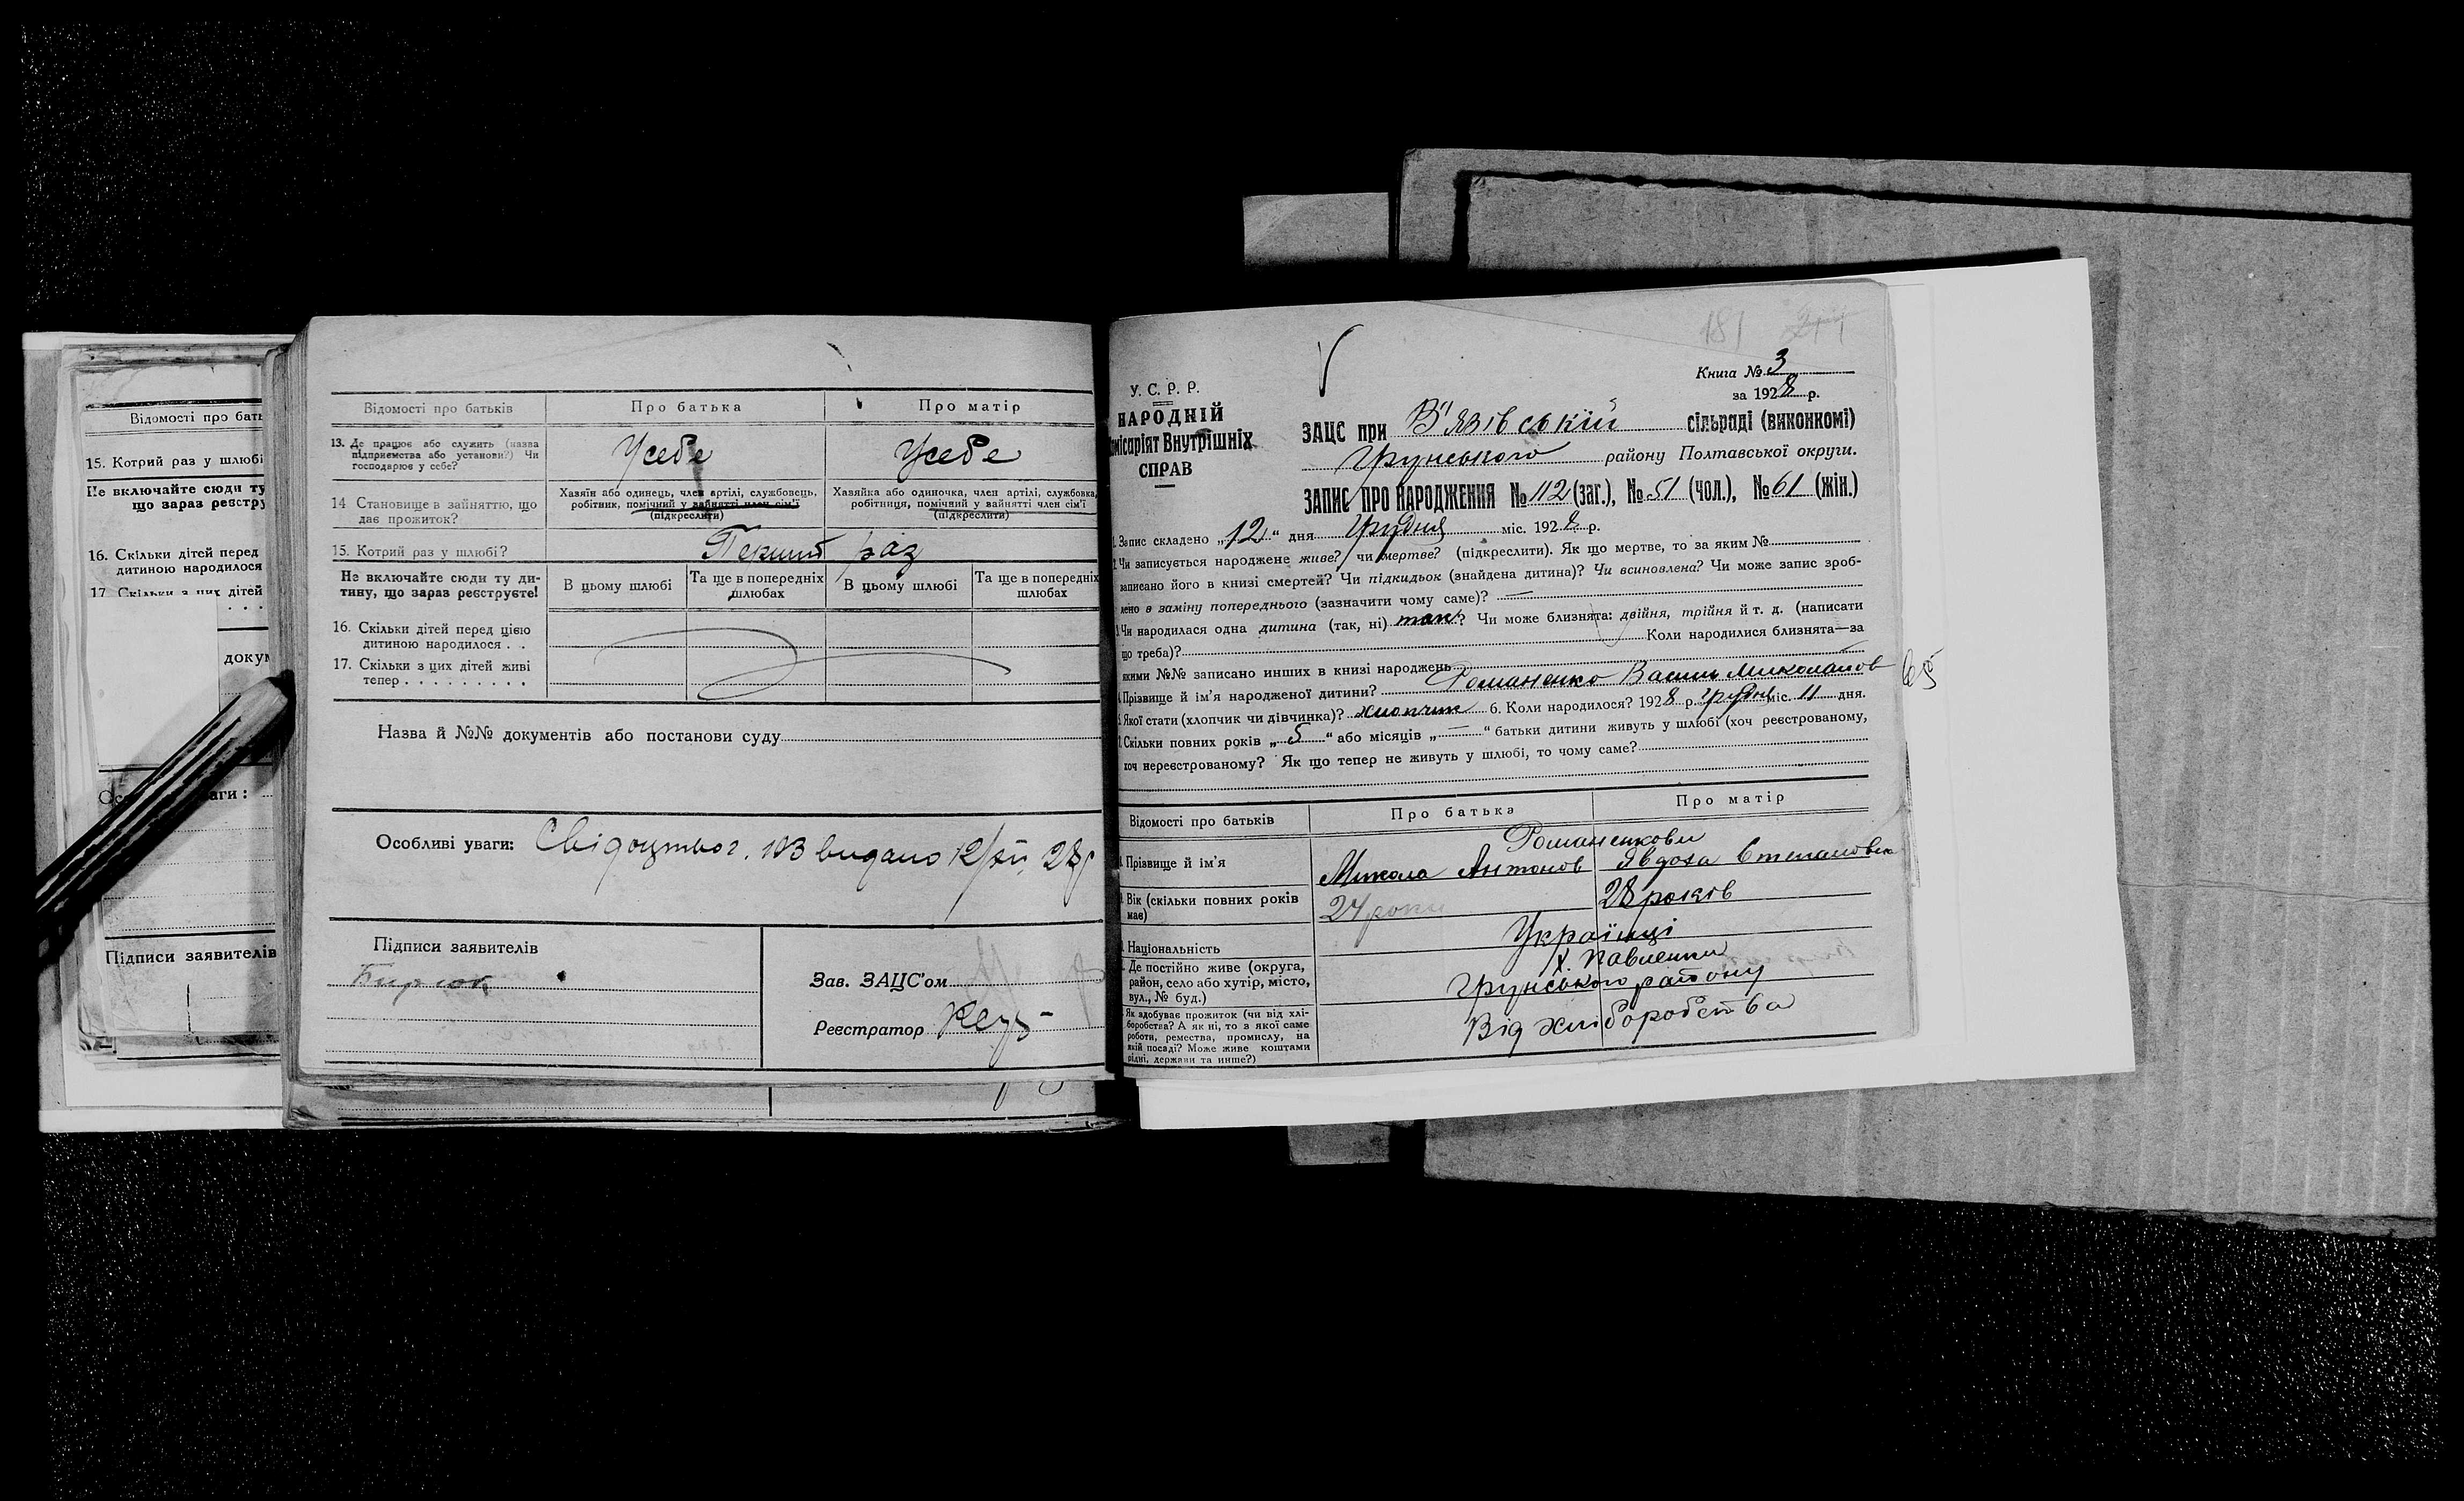 Відомості про бать
15. Котрий раз у шлюбі
Не включайте сюди ту
що зараз реєстру
16. Скільки дітей перед
дитиною народилося
17. Скільки з цих дітей
. . .
докум
аги:
Підписи заявителів
Відомості про батьків
Про батька
Про матір
13. Де працює або служить (назва
підприємства або установи?) Чи
господарює у себе?
Усебе
Усебе
14 Становище в зайняттю, що
дає прожиток?
Хазяїн або одинець, член артілі, службовець,
робітник, помічний у зайнятті член сім'ї
(підкреслити)
Хазяйка або одиночка, член артілі, службовка,
робітниця, помічний у зайнятті член сім'ї
(підкреслити)
15. Котрий раз у шлюбі?
Перший раз
Не включайте сюди ту ди-
тину, що зараз реєструєте!
В цьому шлюбі
Та ще в попередніх
шлюбах
В цьому шлюбі
Та ще в попередніх
шлюбах
16. Скільки дітей перед цією
дитиною народилося . .
17. Скільки з цих дітей живі
тепер . . . . . . . . .
Назва й №№ документів або постанови суду
Особливі уваги: Свідоцтво г. 103 видано 12/XII 28 р
Підписи заявителів
Бирюк
Зав. ЗАЦС'ом
Реєстратор
181
У. С. Р. Р.
НАРОДНІЙ
омісаріят Внутрішніх
СПРАВ
Книга № 3
за 1928 р.
ЗАЦС при В'язівській сільраді (виконкомі)
Грунського району Полтавської округи.
ЗАПИС ПРО НАРОДЖЕННЯ № 112 (заг.), № 51 (чол.), № 61 (жін.)
1. Запис складено „12“ дня Грудня міс. 1928 р.
2. Чи записується народжене живе? чи мертве? (підкреслити). Як що мертве, то за яким №
записано його в книзі смертей? Чи підкидьок (знайдена дитина)? Чи всиновлена? Чи може запис зроб-
лено в заміну попереднього (зазначити чому саме)? —
3. Чи народилася одна дитина (так, ні) так? Чи може близнята: двійня, трійня й т. д. (написати
що треба)? Коли народилися близнята—за
якими №№ записано инших в книзі народжень
4. Прізвище й ім'я народженої дитини? Романенко Василь Миколайов
65
5. Якої стати (хлопчик чи дівчинка)? хлопчик 6. Коли народилося? 1928 р. Грудня міс. 11 дня.
7. Скільки повних років „5“ або місяців „—“ батьки дитини живуть у шлюбі (хоч реєстрованому,
хоч нереєстрованому? Як що тепер не живуть у шлюбі, то чому саме?
Відомості про батьків
Про батька
Про матір
Прізвище й ім'я
Романенкови
Микола Антонов
Явдоха Степановна
Вік (скільки повних років
має)
24 роки
28 років
Національність
Українці
Де постійно живе (округа,
район, село або хутір, місто,
вул., № буд.)
Х. Павленки
Грунського району
Як здобуває прожиток (чи від хлі-
боробства? А як ні, то з якої саме
роботи, ремества, промислу, на
якій посаді? Може живе коштами
рідні, держави та инше?)
Від хліборобства